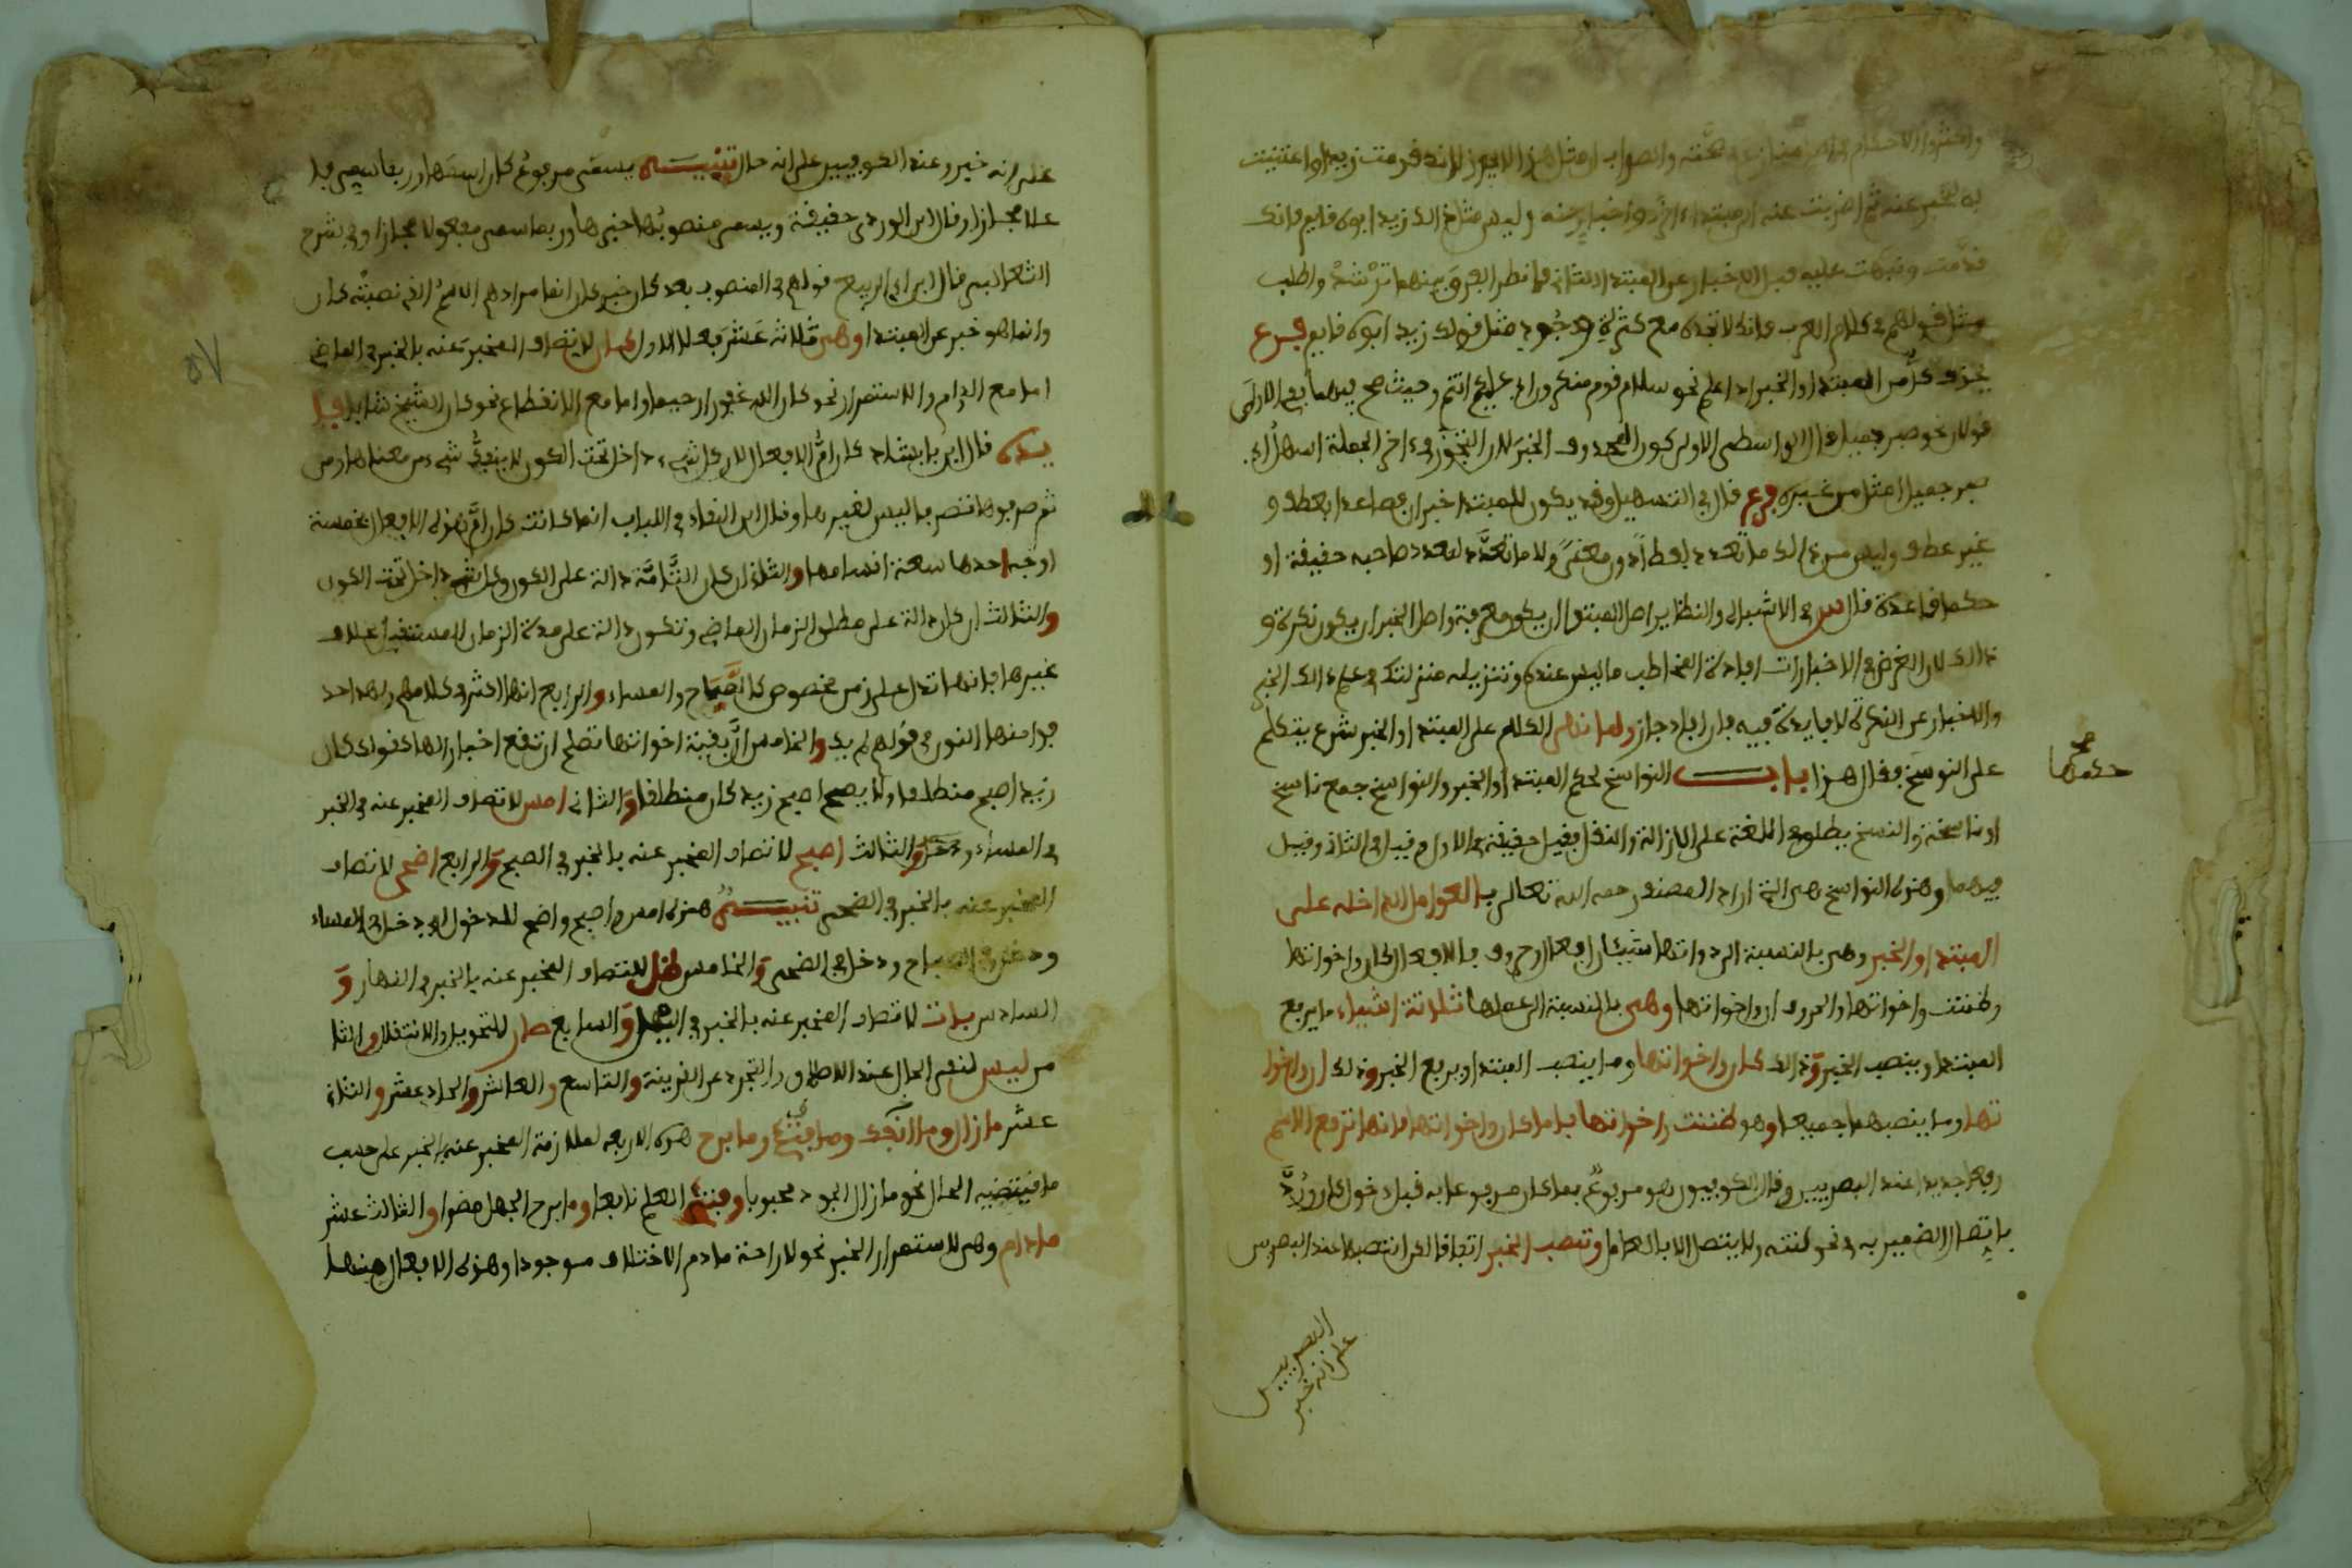 به لتخبر عنه ثم اضربت عنه الى مبتدإ اخر واخبار عنه وليس مثل ذلك زيد ابوه قايم فانك
قدمت ونبهت عليه قبل الاخبار عن المبتدا الثاني فانظر الفرق بينهما ترشد واطلب
مثل قولهم في كلام العرب فانك لا تجده مع كثرة وجود مثل قولك زيد ابوه قايم فرع
يحذف كل من المبتدا والخبر اذا علم نحو سلام قوم منكرون اي عليكم انتم وحيث صح فيهما ففي الاولى
قولان نحو صبر جميل قال الواسطي الاولى كون المحذوف الخبر لان التجوز في ءاخر الجملة اسهل اي
صبر جميل امثل من غيره فرع قال في التسهيل وقد يكون للمبتدا خبران فصاعدا بعطف و
غير عطف وليس من ذلك ما تعدد لفظا دون معنى ولا ما تعدد لتعدد صاحبه حقيقة او
حكما قاعدة قال س في الاشباه والنظاير اصل المبتدا ان يكون معرفة واصل الخبر ان يكون نكرة و
ذالك لان الغرض في الاخبارات افادة المخاطب ما ليس عنده وتنزيله منزلتك في علم ذالك الخبر
والاخبار عن النكرة لا فايدة فيه فان افاد جاز ولما انهى الكلام على المبتدا والخبر شرع يتكلم
على النوسخ فقال هذا باب النواسخ لحكم المبتدا والخبر والنواسخ جمع ناسخ
حكمها صح
او ناسخة والنسخ يطلق في اللغة على الازالة والنقل فقيل حقيقة في الاول وقيل في الثاني وقيل
فيهما وهذه النواسخ هي التي اراد المصنف رحمه الله تعالى بالعوامل الداخله على
المبتدا والخبر وهي بالنسبة الى ذواتها شيئان افعال وحروف فالافعال كان واخواتها
وظننت واخواتها والحروف ان واخواتها وهي بالنسبة الى عملها ثلاثة اشياء ما يرفع
المبتدا وينصب الخبر وذالك كان واخواتها وما ينصب المبتدا ويرفع الخبر وذلك ان واخوا
تها وما ينصبهما جميعا وهو ظننت واخواتها فاما كان واخواتها فانها ترفع الاسم
رفعا جديدا عند البصريين وقال الكوفيون هو مرفوع بما كان مرفوعا به قبل دخول كان ورد
باتصال الضمير به في نحو كنته ولا يتصل الا بالعامل وتنصب الخبر اتفاقا لكن انتصب عند البصريين
البصريين
على انه خبر
على انه خبر وعند الكوفيين على انه حال تنبيه يسمى مرفوع كان اسمها وربما يسمى فا
علا مجازا وقال ابن الوردي حقيقة ويسمى منصوبها خبرها وربما سمي مفعولا مجازا وفي شرح
قال ابن ابي الربيع قولهم في المنصوب بعد كان خبر كان انما مرادهم الاسم الذي نصبته كان
وانما هو خبر عن المبتدا وهي ثلاثة عشر فعلا الاول كان لاتصاف المخبر عنه بالخبر في الماضي
اما مع الدوام والاستمرار نحو كان الله غفورا رحيما واما مع الانقطاع نحو كان الشيخ شابا فا
يدة قال ابن بابشاد كان ام الافعال لان كل شيء داخل تحت الكون لا ينفك شيء من معناها ومن
ثم صرفوها تصرفا ليس لغيرها وقال ابو البقاء في اللباب انما كانت كان ام هذه الافعال لخمسة
اوجه احدها سعة اقسامها والثاني ان كان التامة دالة على الكون وكل شيء داخل تحت الكون
والثالث ان كان دالة على مطلق الزمان الماضي وتكون دالة على مدة الزمان المستقبل بخلاف
غيرها فانها تدل على زمن مخصوص كالصباح والمساء والرابع انها اكثر في كلامهم ولهذا حذ
فوا منها النون في قولهم لم يك والخامس ان بقية اخواتها تصلح ان تقع اخبارا لها كقولك كان
زيد اصبح منطلقا ولا يصح اصبح زيد كان منطلقا والثاني امسى لاتصاف المخبر عنه في الخبر
في المساء والثالث اصبح لاتصاف المخبر عنه بالخبر في الصبح والرابع اضحى لاتصاف
المخبر عنه بالخبر في الضحى تنبيه هذه امسى واصبح واضحى للدخول اي دخل في المساء
ودخل في الصباح ودخل في الضحى والخامس ظل لاتصاف المخبر عنه بالخبر في النهار و
السادس بات لاتصاف المخبر عنه بالخبر في الليل والسابع صار للتحويل والانتقال والثا
من ليس لنفي الحال عند الاطلاق والتجرد عن القرينة والتاسع والعاشر والحاد عشر والثاني
عشر ما زال وما انفك وما فتئ وما برح هذه الاربعه لملازمة المخبر عنه بالخبر على حسب
ما يقتضيه الحال نحو ما زال الجود محبوبا وفتئ العلم نافعا وما برح الجهل مضرا والثالث عشر
ما دام وهي لاستمرار الخبر نحو لا راحة ما دام الاختلاف موجودا وهذه الافعال منها
٥٧